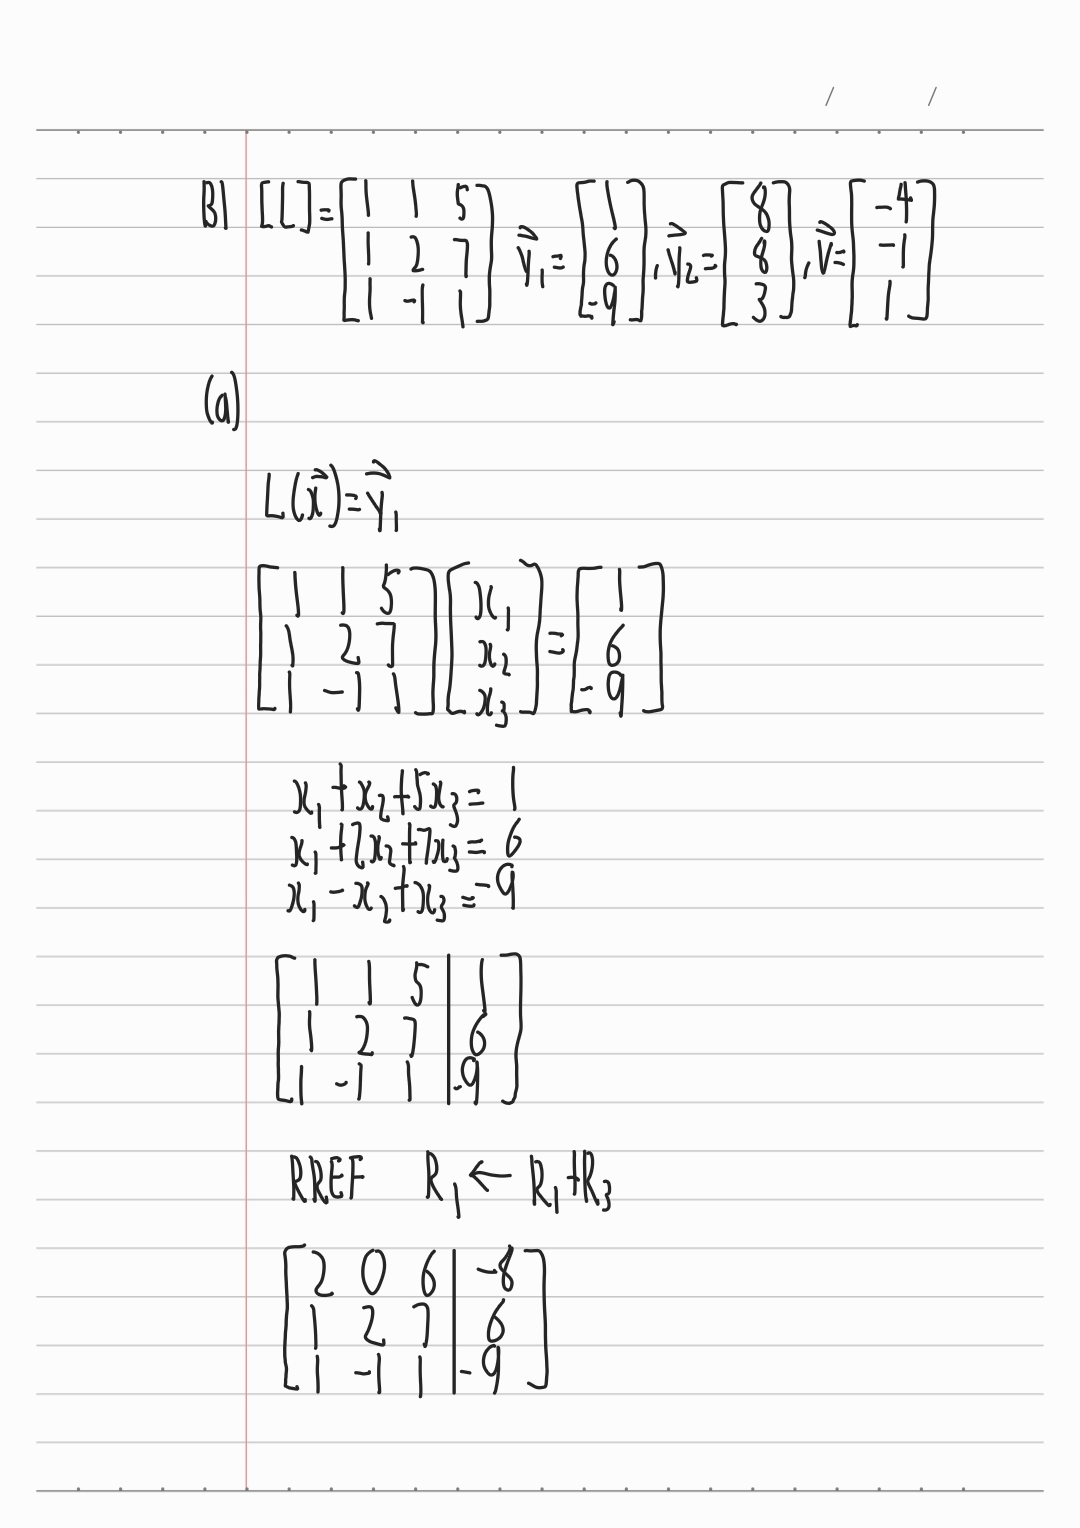 B1 [L] = [1 1 5; 1 2 7; 1 -1 1] y⃗₁ = [1; 6; -9], y⃗₂ = [8; 8; 3], v⃗ = [-4; -1; 1]
(a)
L(x⃗) = y⃗₁
[1 1 5; 1 2 7; 1 -1 1] [x₁; x₂; x₃] = [1; 6; -9]
x₁ + x₂ + 5x₃ = 1
x₁ + 2x₂ + 7x₃ = 6
x₁ - x₂ + x₃ = -9
[1 1 5 | 1
1 2 7 | 6
1 -1 1 | -9]
RREF R₁ ← R₁ + R₃
[2 0 6 | -8
1 2 7 | 6
1 -1 1 | -9]